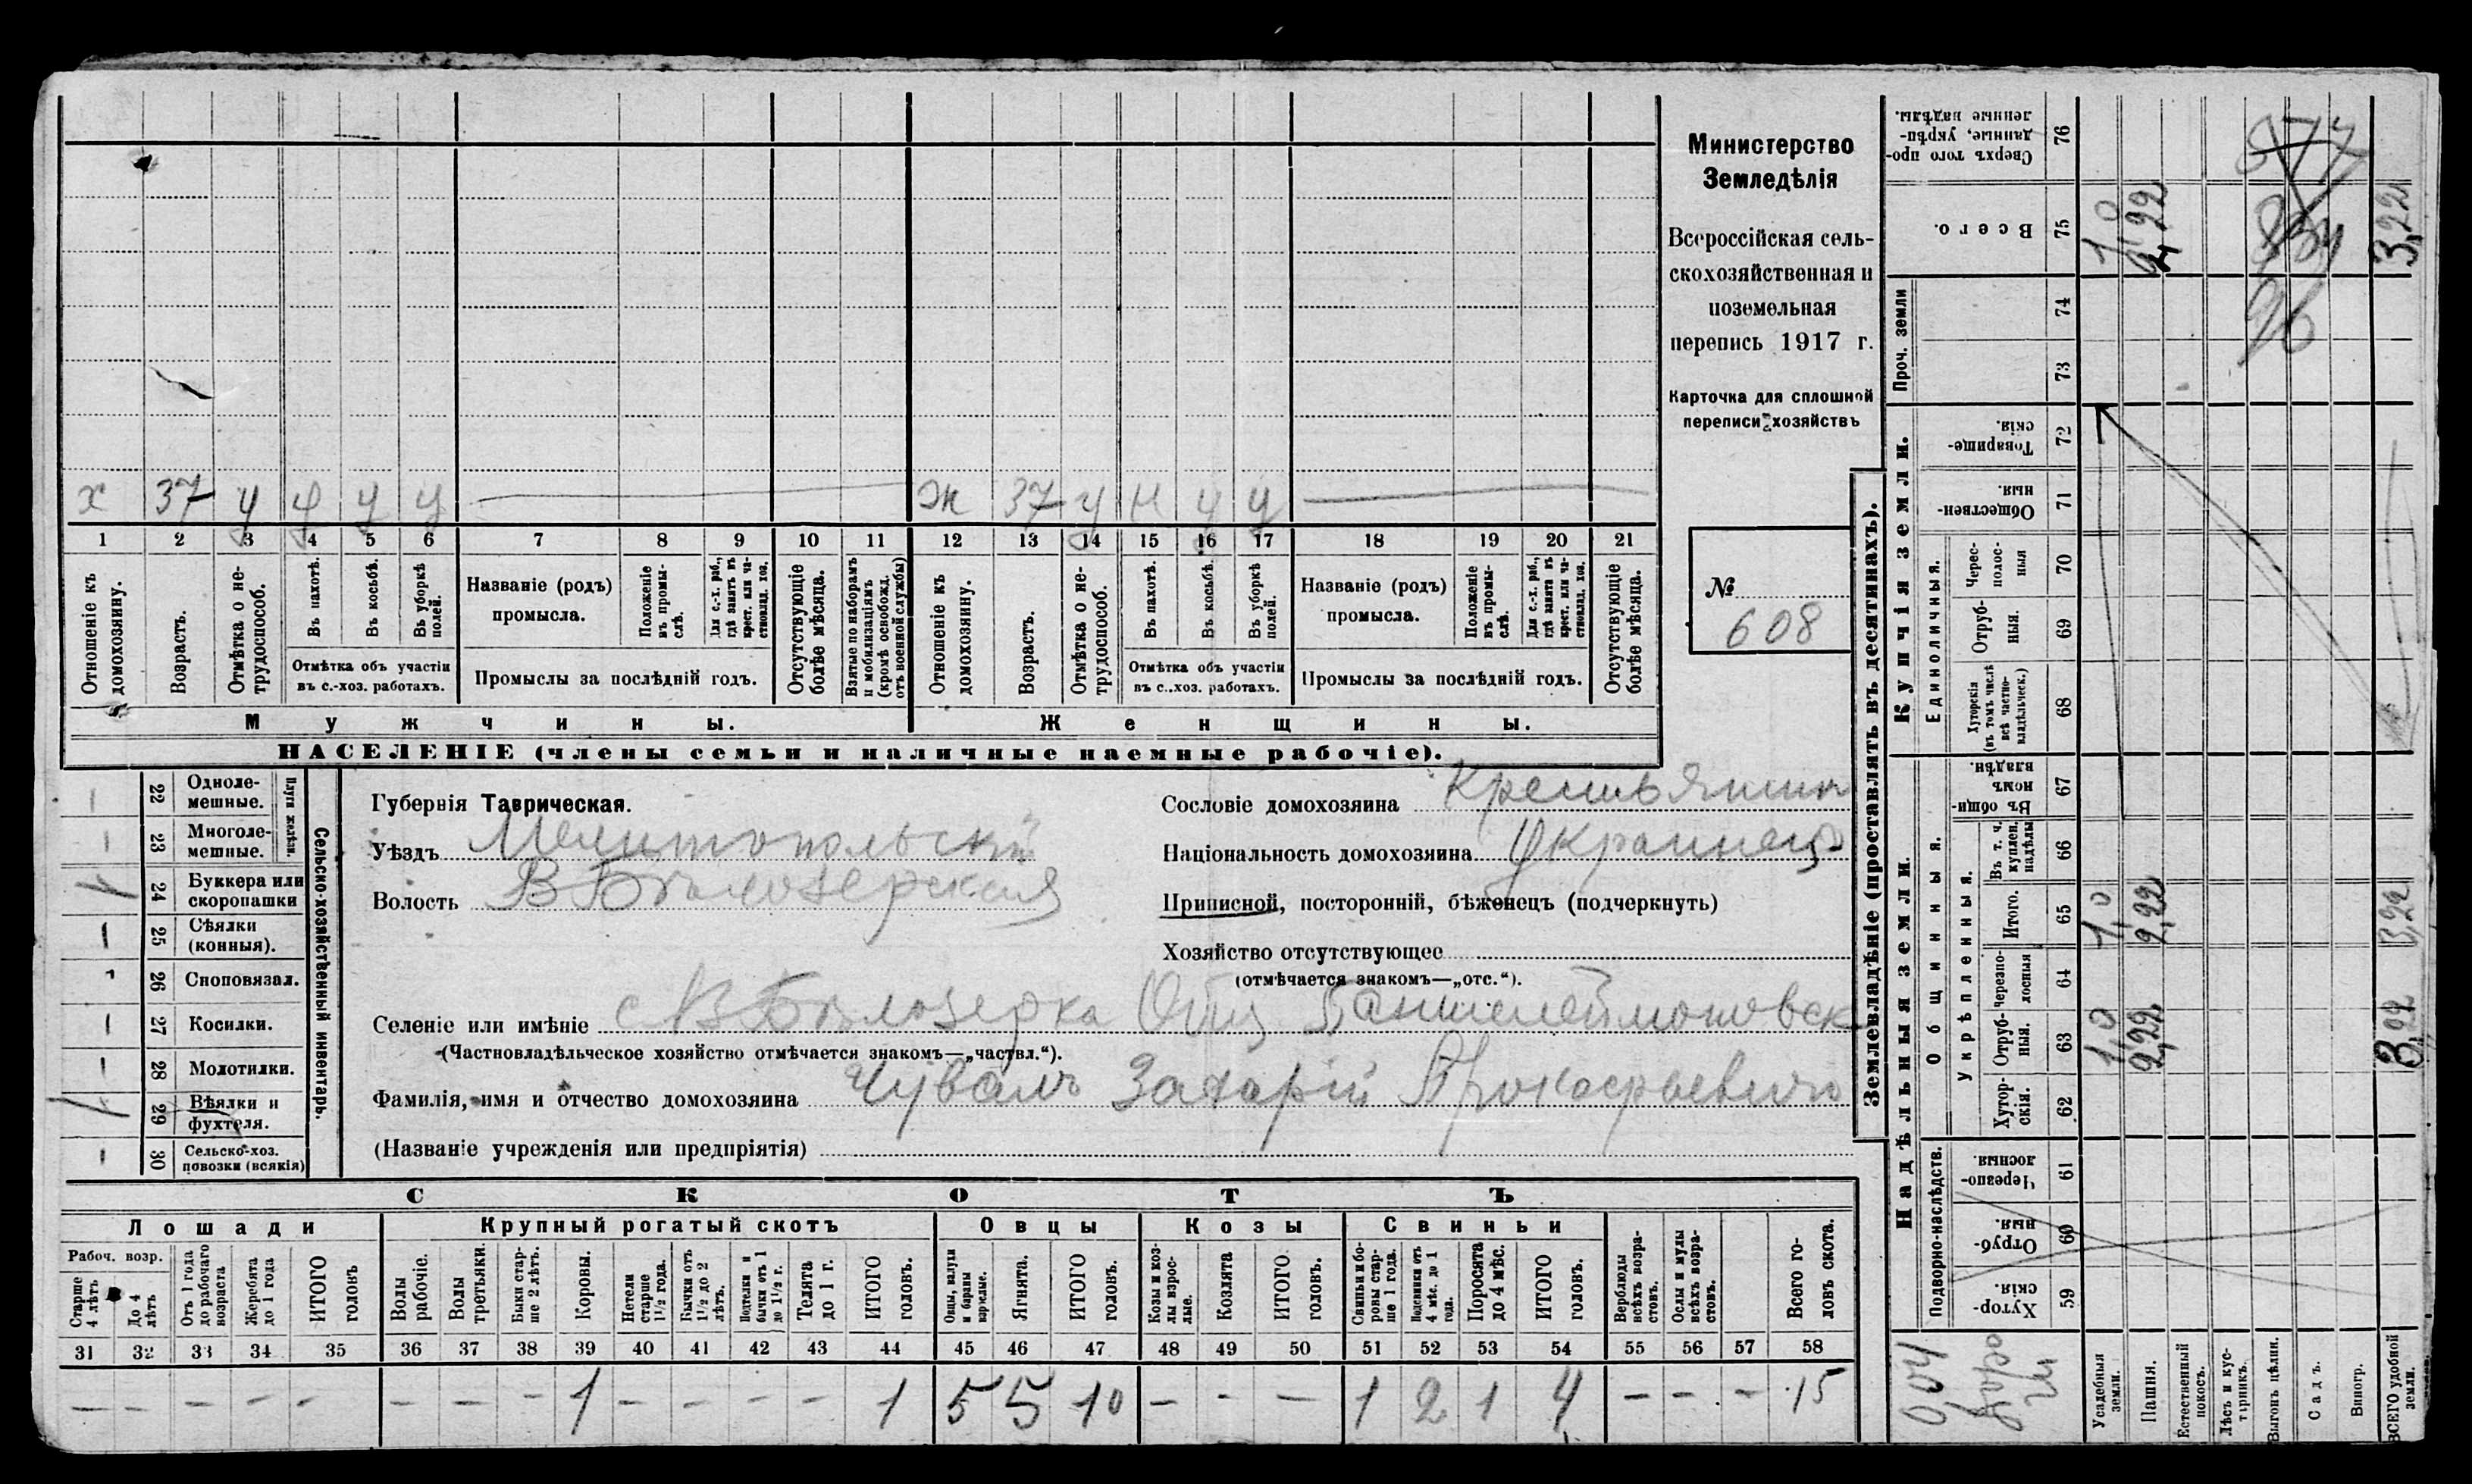 х 37 у у у у
ж 37 у н у у
1 2 3 4 5 6 7 8 9 10 11 12 13 14 15 16 17 18 19 20 21
Отношеніе къ домохозяину.
Возрастъ.
Отмѣтка о не-трудоспособ.
Въ пахотѣ.
Въ косьбѣ.
Въ уборкѣ полей.
Отмѣтка объ участіи
въ с.-хоз. работахъ.
Названіе (родъ)
промысла.
Положеніе въ промы-слѣ.
Для с.-х. раб., гдѣ занятъ въ крест. или ча-стновлад. хоз.
Промыслы за послѣдній годъ.
Отсутствующіе болѣе мѣсяца.
Взятые по наборамъ и мобилизаціямъ (кромѣ освобожд. отъ военной службы)
Отношеніе къ домохозяину.
Возрастъ.
Отмѣтка о не-трудоспособ.
Въ пахотѣ.
Въ косьбѣ.
Въ уборкѣ полей.
Отмѣтка объ участіи
въ с..хоз. работахъ.
Названіе (родъ)
промысла.
Положеніе въ промы-слѣ.
Для с.-х. раб., гдѣ занята въ крест. или ча-стновлад. хоз.
Промыслы за послѣдній годъ.
Отсутствующіе болѣе мѣсяца.
Мужчины.
Женщины.
НАСЕЛЕНІЕ (члены семьи и наличные наемные рабочіе).
Министерство
Земледѣлія
Всероссійская сель-
скохозяйственная и
поземельная
перепись 1917 г.
Карточка для сплошной
переписи хозяйствъ
№
608
22 Одноле-мешные.
23 Многоле-мешные.
Плуги желѣзн.
24 Буккера или скоропашки
25 Сѣялки (конныя).
26 Сноповязал.
27 Косилки.
28 Молотилки.
29 Вѣялки и фухтеля.
30 Сельско-хоз. повозки (всякія)
Сельско-хозяйственный инвентарь.
Губернія Таврическая.
Уѣздъ Мелитопольскій
Волость В Бѣлозерская
Сословіе домохозяина Крестьянин
Національность домохозяина Украинец
Приписной, посторонній, бѣженецъ (подчеркнуть)
Хозяйство отсутствующее
(отмѣчается знакомъ—„отс.“).
Селеніе или имѣніе с В Бѣлозерка Общ Пантелеймоновск
(Частновладѣльческое хозяйство отмѣчается знакомъ—„частвл.“).
Фамилія, имя и отчество домохозяина Чуваль Захарій Прокофьевичъ
(Названіе учрежденія или предпріятія)
СКОТЪ
Лошади
Крупный рогатый скотъ
Овцы
Козы
Свиньи
Рабоч. возр.
Старше 4 лѣтъ
До 4 лѣтъ
Отъ 1 года до рабочаго возраста
Жеребята до 1 года
ИТОГО головъ
Волы рабочіе.
Волы третьяки.
Быки стар-ше 2 лѣтъ.
Коровы.
Нетели старше 1½ года.
Бычки отъ 1½ до 2 лѣтъ.
Подтелки и бычки отъ 1 до 1½ г.
Телята до 1 г.
ИТОГО головъ.
Овцы, валухи и бараны взрослые.
Ягнята.
ИТОГО головъ.
Козы и коз-лы взрос-лые.
Козлята
ИТОГО головъ.
Свиньи и бо-ровы стар-ше 1 года.
Подсвинки отъ 4 мѣс. до 1 года.
Поросята до 4 мѣс.
ИТОГО головъ.
Верблюды всѣхъ возра-стовъ.
Ослы и мулы всѣхъ возра-стовъ.
Всего го-ловъ скота.
31 32 33 34 35 36 37 38 39 40 41 42 43 44 45 46 47 48 49 50 51 52 53 54 55 56 57 58
— — — — — — — — 1 — — — — 1 5 5 10 — — — 1 2 1 4 — — — 15
Землевладѣніе (проставлять въ десятинахъ).
Надѣльныя земли.
Купчія земли.
Проч. земли
Подворно-наслѣдств.
Общинныя.
Укрѣпленныя.
Единоличныя.
Хутор-скія. 59
Отруб-ныя. 60
Черезпо-лосныя. 61
Хутор-скія. 62
Отруб-ныя. 63
Черезпо-лосныя 64
Итого. 65
Въ т. ч. куплен. надѣлы 66
Въ общи-номъ владѣн. 67
Хуторскія (въ томъ числѣ всѣ частно-владѣльческ.) 68
Отруб-ныя. 69
Черес-полос-ныя 70
Обществен-ныя. 71
Товарище-скія. 72
73
74
Всего. 75
Сверхъ того про-данные, укрѣп-ленные надѣлы. 76
Усадебныя земли. 1,0 1,0 1,0
Пашня. 2,22 2,22 2,22
Естественный покосъ.
Лѣсъ и кус-тарникъ.
Выгонъ цѣлин.
Садъ.
Виногр.
ВСЕГО удобной земли. 3,22 3,22 3,22
96